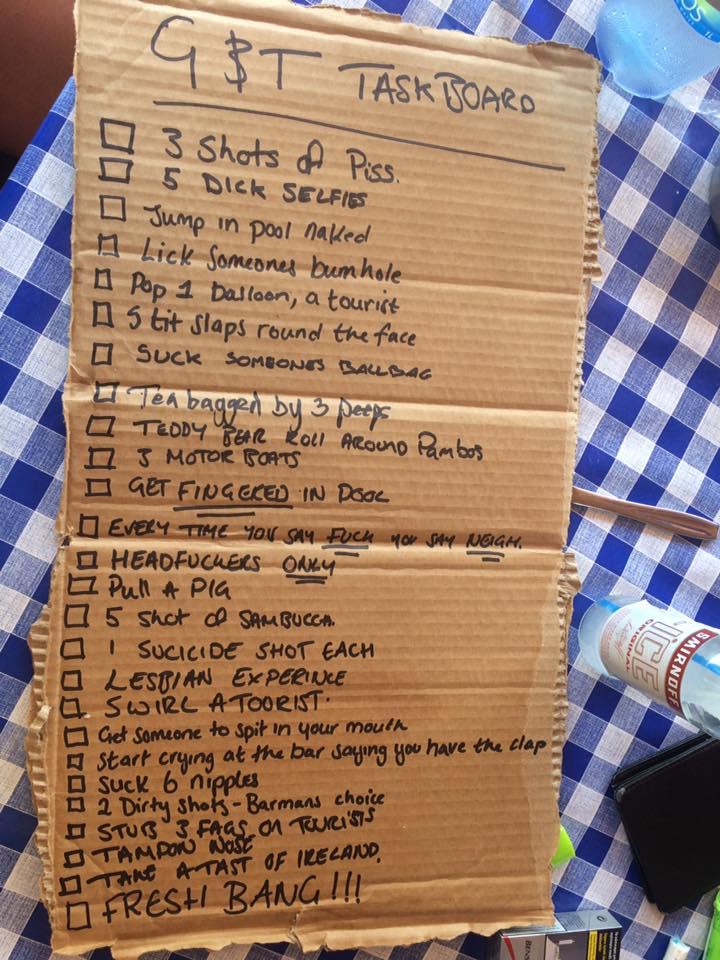 G $ T TASK BOARD
3 Shots of Piss.
5 DICK SELFIES
Jump in pool naked
Lick someones bumhole
Pop 1 balloon, a tourist
5 tit slaps round the face
SUCK SOMEONES BALLBAG
Tea bagged by 3 peeps
TEDDY BEAR ROLL AROUND Pambos
3 MOTOR BOATS
GET FINGERED IN POOL
EVERY TIME YOU SAY FUCK YOU SAY NEIGH.
HEADFUCKERS ONLY
Pull A PIG
5 Shot of SAMBUCCA.
1 SUCICIDE SHOT EACH
LESBIAN EXPERINCE
SWIRL A TOORIST.
Get someone to spit in your mouth
Start crying at the bar saying you have the clap
Suck 6 nipples
2 Dirty shots - Barmans choice
STUB 3 FAGS ON TOURISTS
TAMPON NOSE
TAKE A TAST OF IRELAND.
FRESH BANG!!!
SMIRNOFF
ICE
ORIGINAL